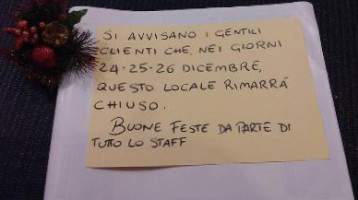 SI AVVISANO I GENTILI
CLIENTI CHE, NEI GIORNI
24-25-26 DICEMBRE,
QUESTO LOCALE RIMARRÁ
CHIUSO.
BUONE FESTE DA PARTE DI
TUTTO LO STAFF